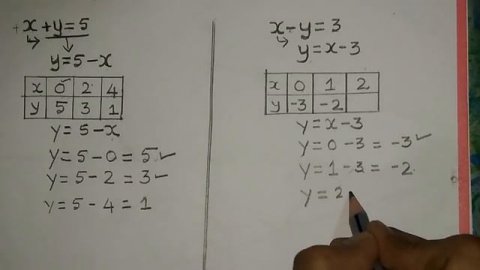 x+y=5
y=5-x
x 0 2 4
y 5 3 1
y=5-x
y=5-0=5✓
y=5-2=3✓
y=5-4=1
x-y=3
y=x-3
x 0 1 2
y -3 -2
y=x-3
y=0-3=-3✓
y=1-3=-2
y=2